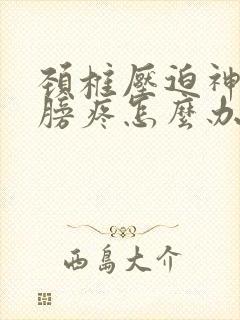 頸椎壓迫神
膀疼怎麼办
西島大介